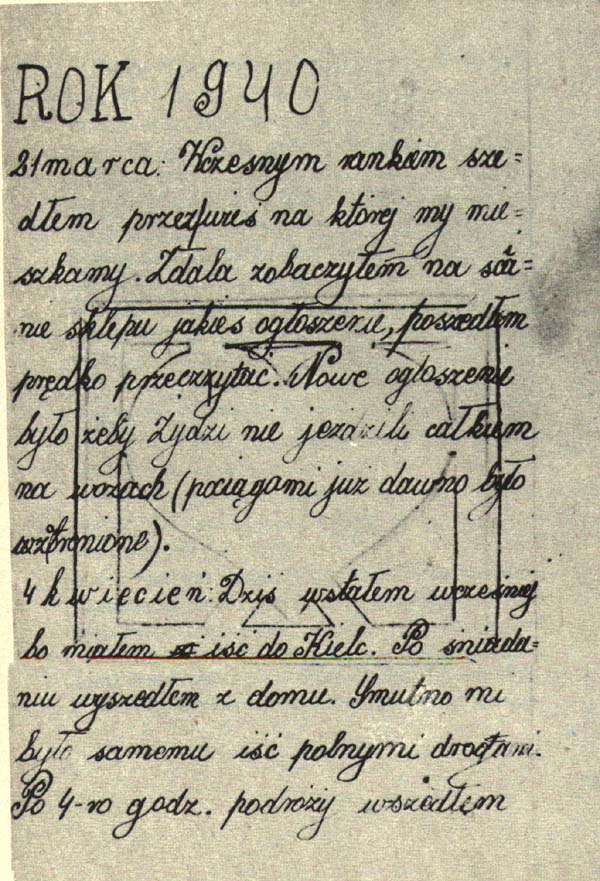 ROK 1940
21 marca: Wczesnym rankiem sze=
dłem przez wieś na której my mie=
szkamy. Zdala zobaczyłem na ścia=
nie sklepu jakieś ogłoszenie, poszedłem
prędko przeczytać. Nowe ogłoszenie
było żeby Żydzi nie jeździli całkiem
na wozach (pociągami już dawno było
wzbronione).
4 kwiecień: Dziś wstałem wcześniej
bo miałem iść do Kielc. Po śniada=
niu wyszedłem z domu. Smutno mi
było samemu iść polnymi drogami.
Po 4-ro godz. podróży wszedłem